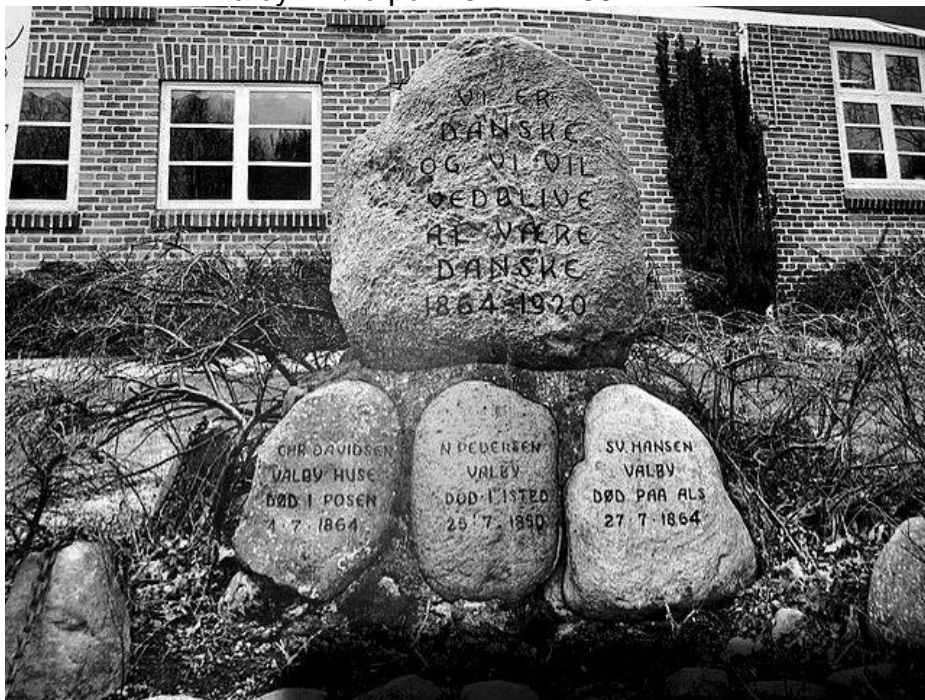 VI ER
DANSKE
OG VI VIL
VEDBLIVE
AT VÆRE
DANSKE
1864-1920
CHR DAVIDSEN
VALBY HUSE
DØD I POSEN
1·7·1864
N PEDERSEN
VALBY
DØD I ISTED
25·7·1850
SV. HANSEN
VALBY
DØD PAA ALS
27·7·1864